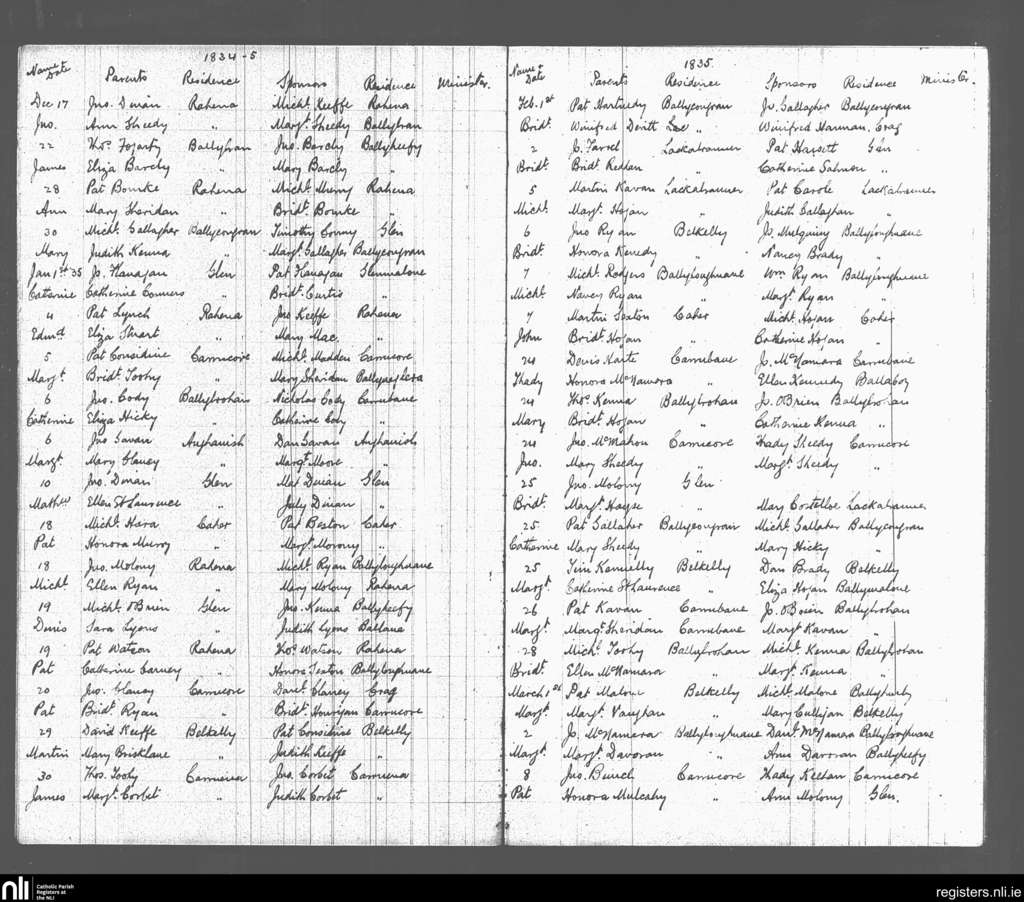 1834-5
Name & Date Parents Residence Sponsors Residence Minister.
Dec 17 Jno. Dinan Rahena Michl. Keeffe Rahena
Jno. Ann Sheedy " Margt. Sheedy Ballybran
22 Thos. Fogarty Ballybran Jno. Barcly Ballykeefy
James Eliza Barcly " Mary Barcly "
28 Pat Bourke Rahena Michl. Murry Rahena
Ann Mary Sheridan " Bridt. Bourke "
30 Michl. Gallagher Ballycongran Timothy Conny Glen
Mary Judith Kenna " Margt. Gallagher Ballycongran
Jan 1st 35 Jo. Flanagan Glen Pat Flanagan Glenmalone
Catherine Catherine Conners " Bridt. Curtis "
4 Pat Lynch Rahena Jno Keeffe Rahena
Edmd. Eliza Stuart " Mary Mac. "
5 Pat Considine Carrucore Michl. Madden Carrucore
Margt. Bridt. Toohy " Mary Sheridan
6 Jno. Cody Ballybrohan Nicholas Cody Carrubane
Catherine Eliza Hicky " Catherine Cody "
6 Jno Gavan Aughanish Dan Gavan Aughanish
Margt. Mary Glaney " Margt. Moore "
10 Jno. Dinan Glen Mat Dinan Glen
Mathew Ellen St Laurence " July Dinan "
18 Michl. Hara Caher Pat Beston Caher
Pat Honora Murry " Margt. Morony "
18 Jno. Molony Rahena Michl. Ryan Ballyloughnane
Michl. Ellen Ryan " Mary Molony Rahena
19 Michl. O'Brien Glen Jno. Kenna Ballykeefy
Denis Sara Lyons " Judith Lyons Ballane
19 Pat Watson Rahena Thos. Watson Rahena
Pat Catherine Carney " Honora Sexton Ballyloughnane
20 Jno. Glaney Carrucore Danl. Clancy Crag
Pat Bridt. Ryan " Bridt. Hourigan Carrucore
29 David Keeffe Belkelly Pat Considine Belkelly
Martin Mary Brisklane " Judith Keeffe "
30 Thos. Toohy Carruena Jno. Corbet Carruena
James Margt. Corbet " Judith Corbet "
1835.
Name & Date Parents Residence Sponsors Residence Minister.
Feb. 1st Pat Hartnedy Ballycongran Jo. Gallagher Ballycongran
Bridt. Winifred Devitt " Winifred Hannan. Crag
2 J. Farrel Lackabranner Pat Hassett Glen
Bridt. Bridt. Reddan " Catherine Salmon "
5 Martin Kavan Lackabranner Pat Carole Lackabranner
Michl. Margt. Hogan " Judith Callaghan "
6 Jno Ryan Belkelly Jo. Mulquiny Ballyloughnane
Bridt. Honora Kenedy " Nancy Brady "
7 Michl. Rodgers Ballyloughnane Wm. Ryan Ballyloughnane
Michl. Nancy Ryan " Margt. Ryan "
7 Martin Sexton Caher Michl. Hogan Caher
John Bridt. Hogan " Catherine Hogan "
24 Denis Harte Carrubane J. McNamara Carrubane
Thady Honora McNamara " Ellen Kennedy Ballaboy
24 Thos. Kenna Ballybrohan Jo. O'Brien Ballybrohan
Mary Bridt. Hogan " Catherine Kenna "
24 Jno. McMahon Carrucore Thady Sheedy Carrucore
Jno. Mary Sheedy " Margt. Sheedy "
25 Jno. Molony Glen
Bridt. Margt. Hayse " Mary Costelloe Lackabranner
25 Pat Gallaher Ballycongran Michl. Gallaher Ballycongran
Catherine Mary Sheedy " Mary Hicky "
25 Tim Kennelly Belkelly Dan Brady Belkelly
Margt. Catherine St Laurence " Eliza Hogan Ballymalone
26 Pat Kavan Carrubane J. O'Brien Ballybrohan
Margt. Margt. Sheridan Carrubane Margt. Kavan "
28 Michl. Toohy Ballybrohan Michl. Kenna Ballybrohan
Bridt. Ellen McNamara " Margt. Kenna "
March 1st Pat Malone Belkelly Michl. Malone Ballyhurly
Margt. Margt. Vaughan " Mary Culligan Belkelly
2 J. McNamara Ballyloughnane Danl. McNamara Ballyloughnane
Margt. Margt. Davoran " Ann Davoran Ballykeefy
8 Jno. Burch Carrucore Thady Keehan Carrucore
Pat Honora Mulcahy " Ann Molony Glen.
nli Catholic Parish
Registers at
the NLI
registers.nli.ie